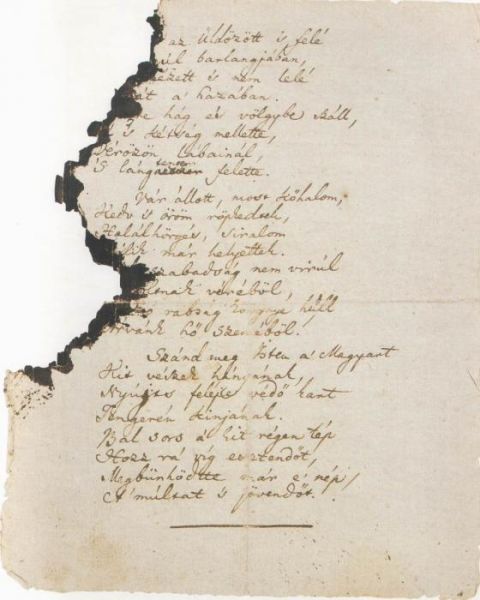 az Üldözött is felé
barlangjában,
is nem lelé
a' hazában.
hág és völgybe száll,
is kétség mellette,
Vérözön lábainál,
'S lángtenger felette.
Vár állott, most kőhalom,
Kedv is öröm röpkedtek,
Halálhörgés, siralom
már helyettek.
szabadság nem virúl
véréből,
rabság könnye hűll
hő szeméből.
Szánd meg Isten a' Magyart
Kit vészek hányanak,
Nyújts feléje védő kart
Tengerén kínjának.
Bal sors a' kit régen tép
Hozz rá víg esztendőt,
Megbünhödte már e' nép
A' múltat 's jövendőt.